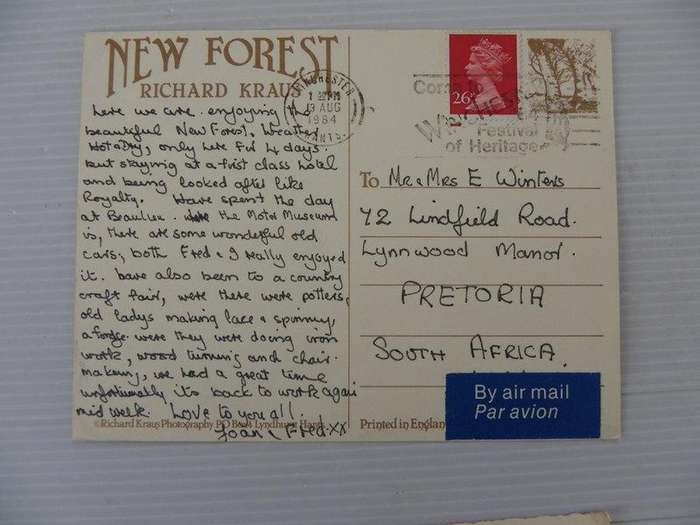 NEW FOREST
RICHARD KRAUS
here we are enjoying the
beautiful New Forest, Weather
Hot & Dry, only here for 4 days.
but staying at a first class hotel
and being looked after like
Royalty. Have spent the day
at Beaulieu. where the Motor Museum
is, there are some wonderful old
cars, both Fred & I really enjoyed
it. have also been to a country
craft fair, were there were potters,
old ladys making lace & spinning,
a forge. were they were doing iron
work, wood turning and chair.
making, we had a great time
unfortunately it's back to work again
mid week. Love to you all.
Joan & Fred. xx
©Richard Kraus Photography, PO Box 4 Lyndhurst Hants.
WINCHESTER
1 PM
13 AUG
1984
HANTS
26
Festival
of Heritage
To Mr & Mrs E Winters
72 Lindfield Road.
Lynnwood Manor.
PRETORIA
SOUTH AFRICA.
By air mail
Par avion
Printed in England